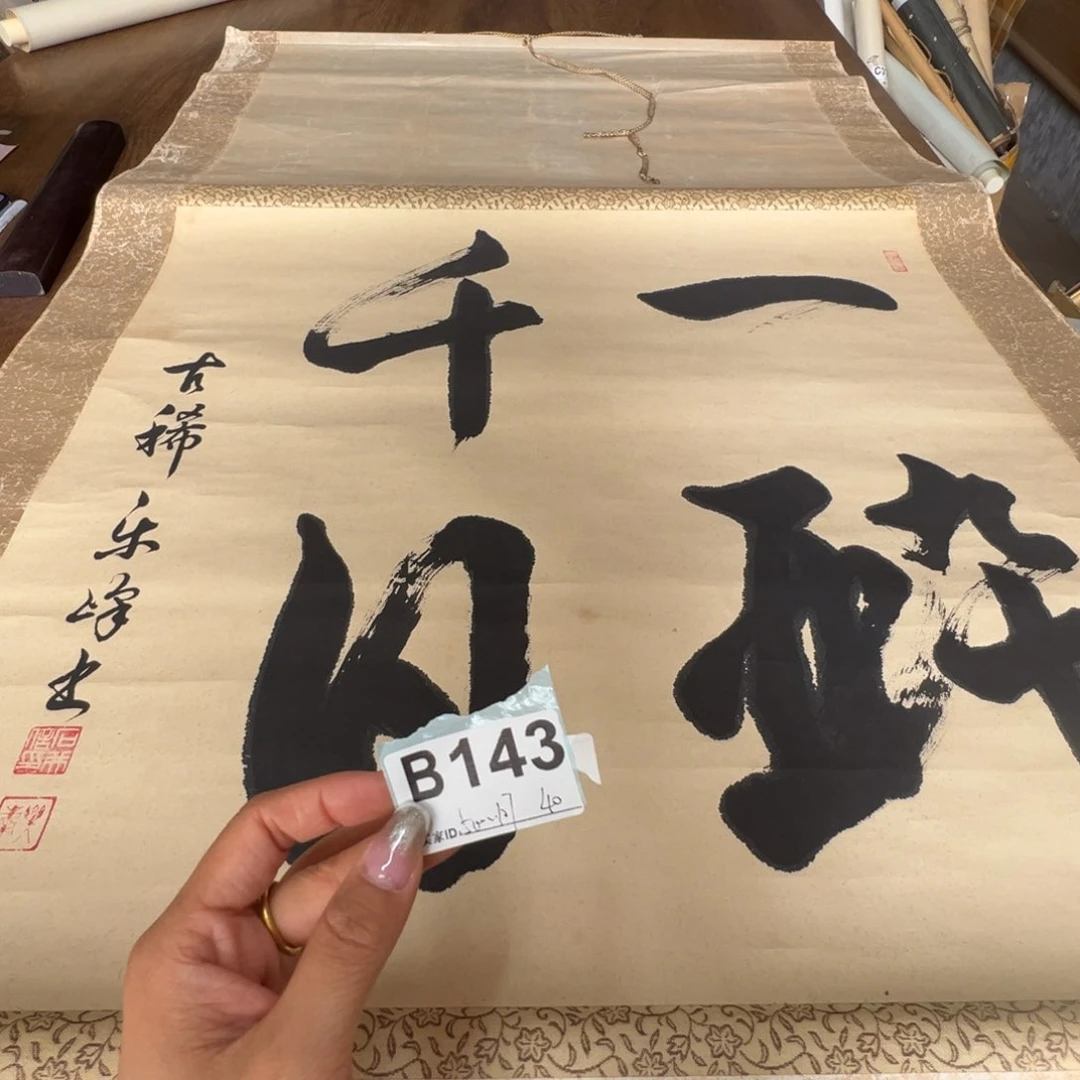 一醉
千日
古稀 乐峰书
B143
家ID: 40